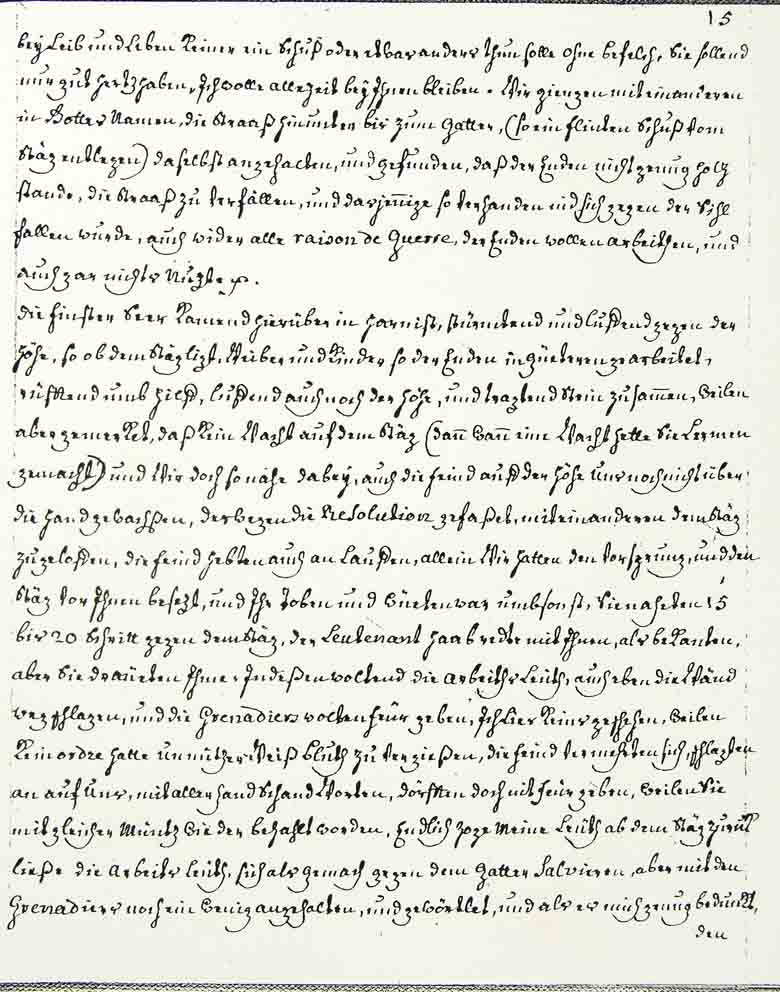 15
bey Leib und Leben Keiner ein Schuß oder etwas anders thun solle ohne befelch, Sie sollend
nur gut hertz haben, Ich wolle allezeit bey Ihnen bleiben. Wir giengen mit einanderen
in Gottes Namen, die Straaß hinunter bis zum Gatter, (so ein flinten Schuß vom
Stäg entlegen) daselbst angehalten, und gefunden, daß der Enden nicht genug holtz
stande, die Straaß zu verfällen, und dasjenige so verhanden nid sich gegen der Sihl
fallen wurde, auch wider alle raison de Guerre, der Enden wollen arbeithen, und
auch gar nichts Nutzte
die finster Seer Kamend hierüber in harnist, stürmtend und luffend gegen der
höhe, so ob dem Stäg ligt, Weiber und Kinder so der Enden in güeteren gearbeitet,
rüfftend umb hilff, luffend auch nach der höhe, und tragtend Stein zusamen, Weilen
aber gemerket, daß Kein Wacht auf dem Stäg (dan wan eine Wacht hette Sie Lermen
gemacht) und Wir doch so nahe dabey, auch die feind auff der höhe Uns noch nicht über
die hand gewachßen, deswegen die Resolution gefaßet, mit einanderen dem Stäg
zugeloffen, die feind hebten auch an Lauffen, allein Wir hatten den Vorsprung, und den
Stäg vor Ihnen besezt, und Ihr Toben und Wüeten war umbsonst, Sie naheten 15
bis 20 Schritt gegen dem Stäg, der Leutenant haab redte mit Ihnen, als beKanten,
aber Sie draüeten Ihme. Indeßen woltend die Arbeiths Leüth, auch eben die Wänd
weg schlagen, und die Grenadiers wolten feür geben, Ich Lies Keins geschehen, Weilen
Kein ordre hatte unnützer Weiß Bluth zu vergießen, die feind vermehrten sich, schlagten
an auf Uns, mit allerhand Schand Worten, dörfften doch nit feür geben, Weilen Sie
mit gleicher Müntz Wieder bezahlt worden, Endlich zoge Meine Leüth ab dem Stäg zuruk
ließe die Arbeits Leüth, sich als gemach gegen dem Gatter Salvieren, aber mit den
Grenadiers noch ein Wenig angehalten, und gewörtlet, und als es mich genug bedunkt,
den